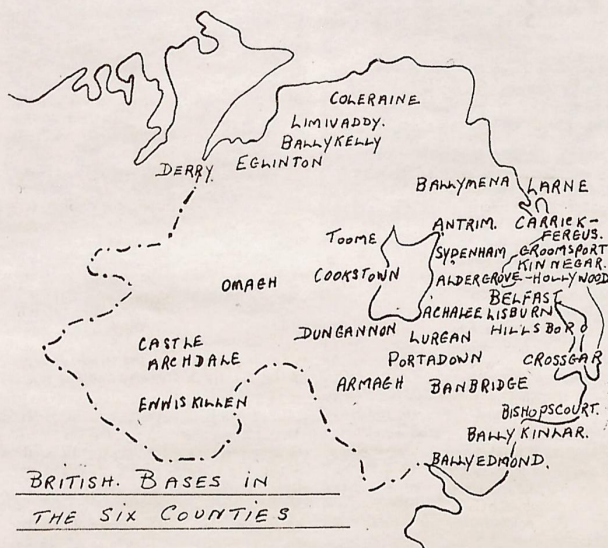 COLERAINE
LIMIVADDY.
BALLYKELLY
EGLINTON
DERRY.
BALLYMENA LARNE
ANTRIM. CARRICK-
FERGUS.
TOOME
SYDENHAM GROOMSPORT
KINNEGAR.
COOKSTOWN
OMAGH
ALDERGROVE-HOLLYWOOD
BELFAST
ACHALEE LISBURN
HILLSBORO
DUNGANNON
LURGAN
CASTLE
ARCHDALE
PORTADOWN
CROSSGAR
ARMAGH BANBRIDGE
ENNISKILLEN
BISHOPSCOURT.
BALLYKINLAR.
BALLYEDMOND.
BRITISH. BASES IN
THE SIX COUNTIES